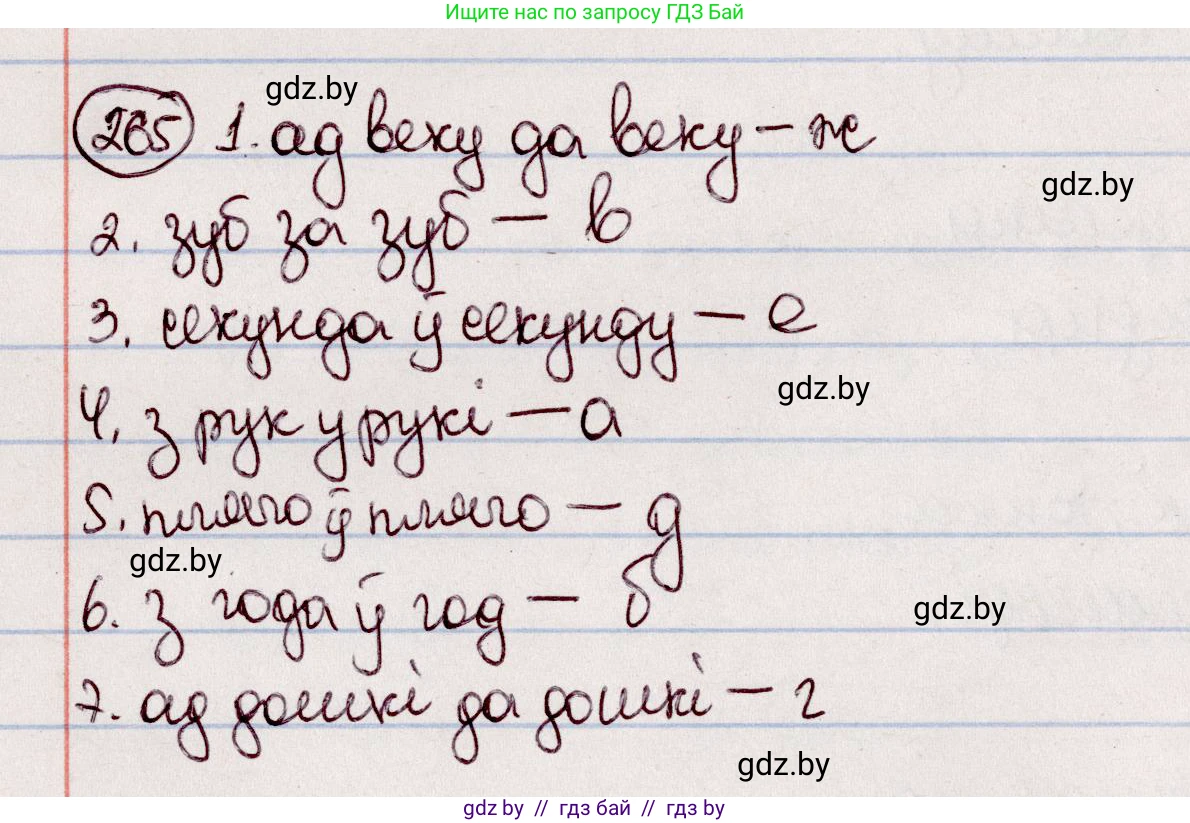 Ищите нас по запросу ГДЗ Бай
gdz.by
265 1. ад веку да веку – ж
gdz.by
2. зуб за зуб – в
3. секунда ў секунду – е
gdz.by
4. з рук у рукі – а
5. плячо ў плячо – д
gdz.by
6. з года ў год – б
gdz.by
7. ад дошкі да дошкі – г
gdz.by
gdz.by // гдз бай // гдз by